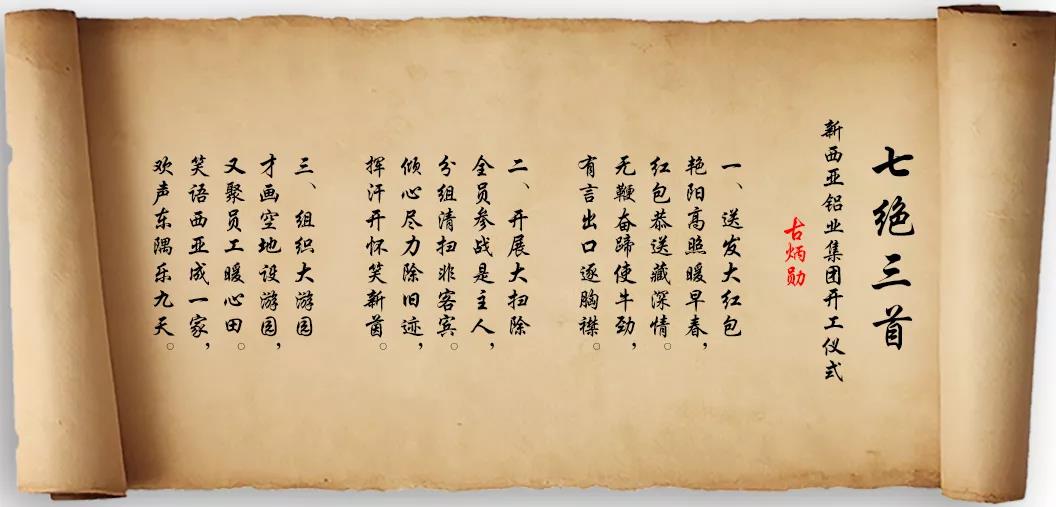 七绝三首
新西亚铝业集团开工仪式
古炳勋
一、送发大红包
艳阳高照暖早春，
红包恭送藏深情。
无鞭奋蹄使牛劲，
有言出口逐胸襟。
二、开展大扫除
全员参战是主人，
分组清扫非客宾。
倾心尽力除旧迹，
挥汗开怀笑新茵。
三、组织大游园
才画空地设游园，
又聚员工暖心田。
笑语西亚成一家，
欢声东隅乐九天。